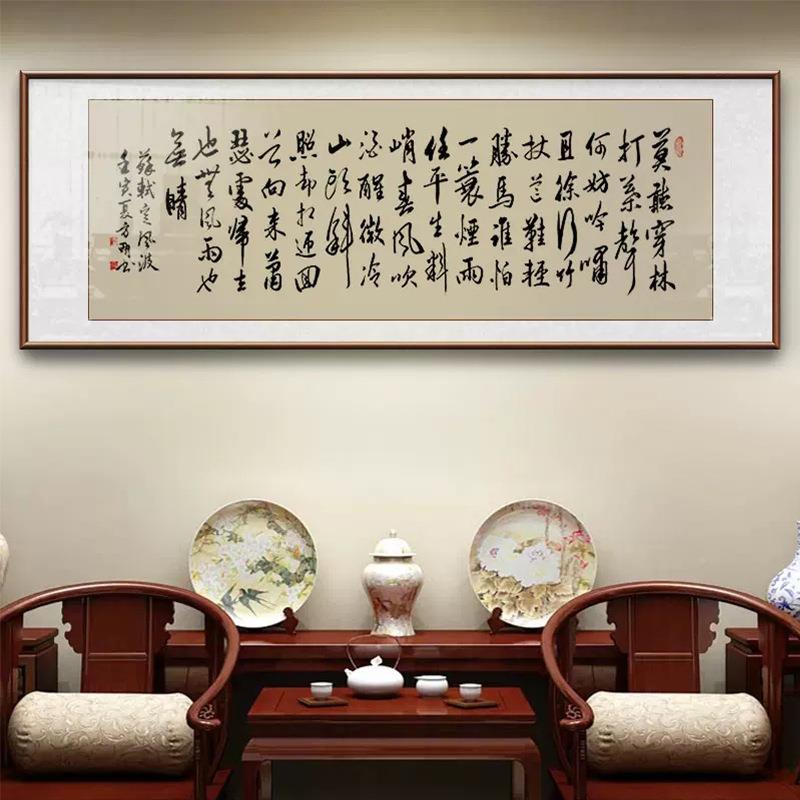 莫聽穿林
打葉聲
何妨吟嘯
且徐行竹
杖芒鞵輕
勝馬誰怕
一蓑煙雨
任平生料
峭春風吹
酒醒微冷
山頭斜
照却相迎回
首向来蕭
瑟處歸去
也無風雨也
無晴
蘇軾定風波
壬寅夏方書